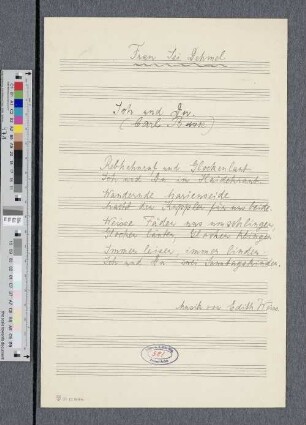 Frau Isi Dehmel
Ich und Du.
(Carl Busse)
Rebhuhnruf und Glockenlaut
Ich und Du im Heidekraut.
Wandernde Marienseide
macht die Kuppler für uns beide.
Weisse Fäden uns umschlingen,
Glocken läuten, Glocken klingen
Immer leiser, immer linder
Ich und Du zwei Sonntagskinder.
Musik von Edith